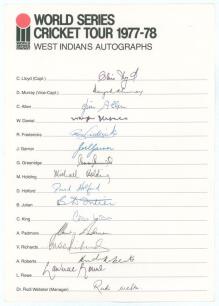 WORLD SERIES
CRICKET TOUR 1977-78
WEST INDIANS AUTOGRAPHS
C. Lloyd (Capt.)
D. Murray (Vice-Capt.)
C. Allen Jim Allen
W. Daniel
R. Fredericks
J. Garner Joel Garner
G. Greenidge
M. Holding Michael Holding
D. Holford David Holford
B. Julien
C. King Collis King
A. Padmore
V. Richards
A. Roberts
L. Rowe Lawrence Rowe
Dr. Rudi Webster (Manager) Rudi Webster